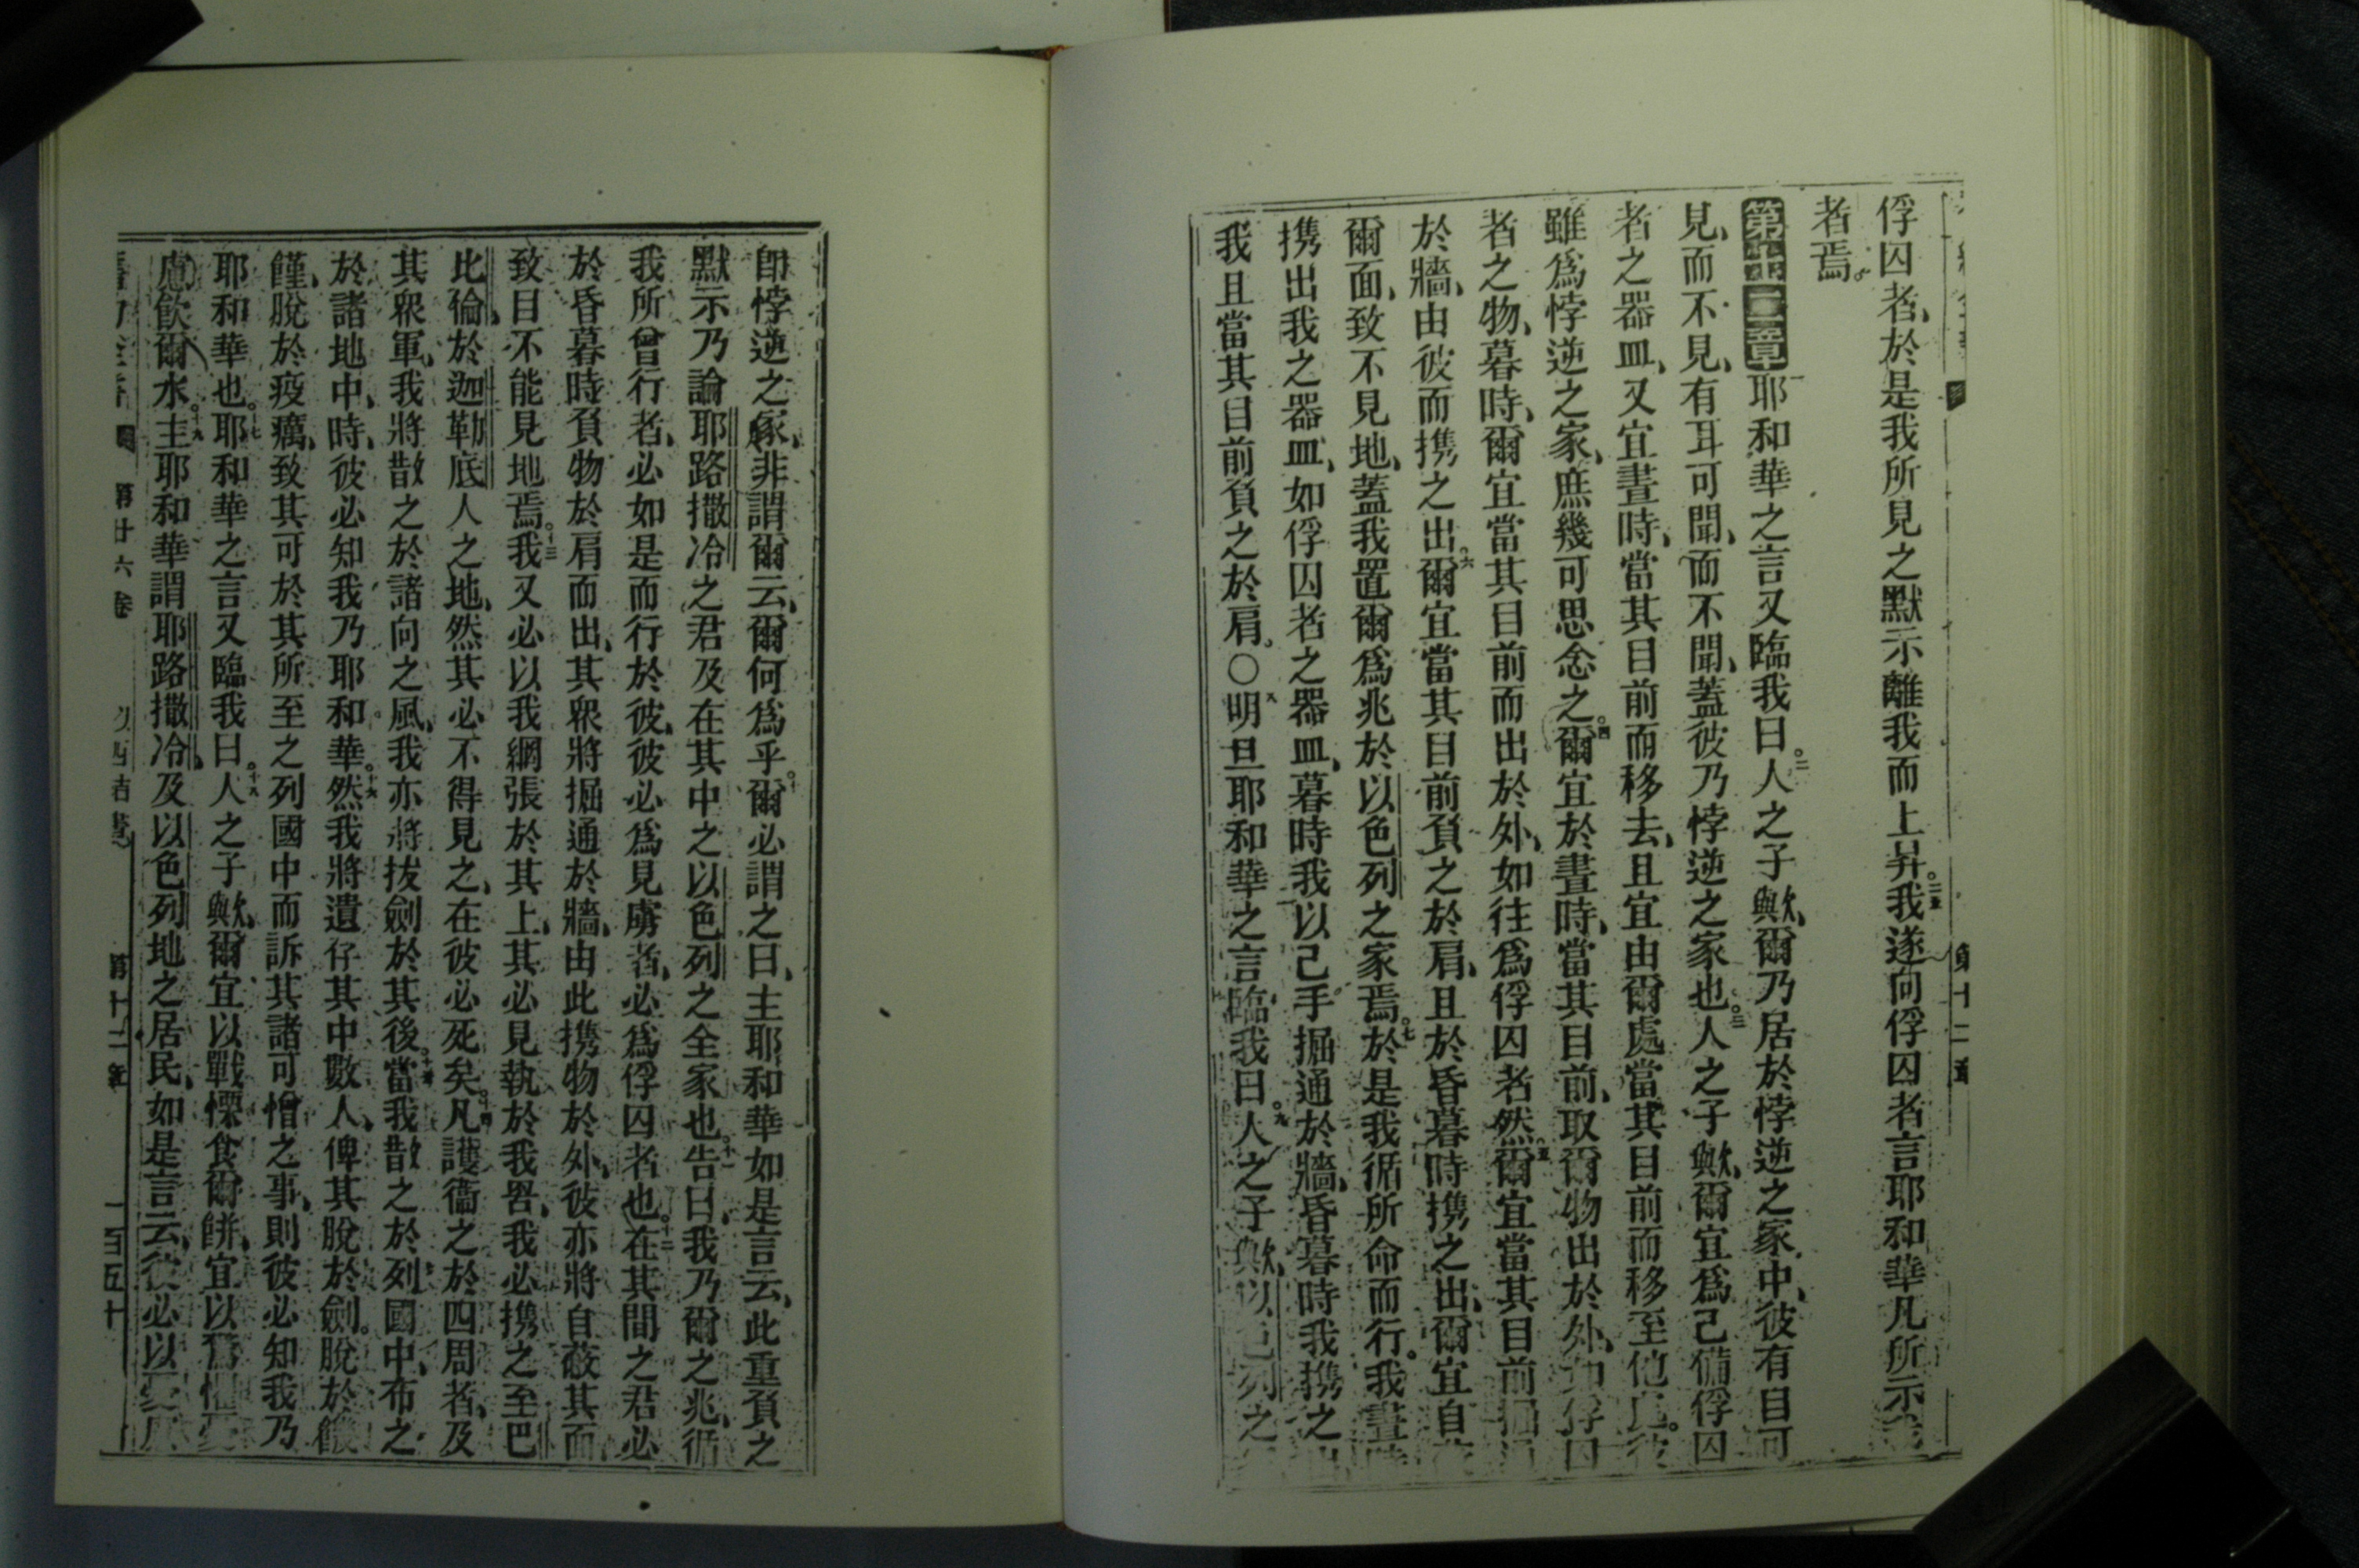 俘囚者、於是我所見之默示離我而上昇。二五我遂向俘囚者言耶和華凡所示
者焉。
第十二章 一耶和華之言又臨我曰。二人之子歟、爾乃居於悖逆之家中、彼有目可
見、而不見、有耳可聞、而不聞、蓋彼乃悖逆之家也。三人之子歟、爾宜爲己備俘囚
者之器皿、又宜晝時、當其目前而移去、且宜由爾處當其目前而移至他處。彼
雖爲悖逆之家、庶幾可思念之。四爾宜於晝時、當其目前、取爾物出於外、如俘囚
者之物、暮時、爾宜當其目前而出於外、如往爲俘囚者然。五爾宜當其目前掘通
於牆、由彼而攜之出。六爾宜當其目前負之於肩、且於昏暮時攜之出、爾宜自
爾面、致不見地、蓋我置爾爲兆於以色列之家焉。七於是我循所命而行。我晝
攜出我之器皿、如俘囚者之器皿、暮時我以己手掘通於牆、昏暮時我攜之
我且當其目前負之於肩。〇八明旦耶和華之言臨我曰。九人之子歟、以色列之
第十二章
卽悖逆之家、非謂爾云、爾何爲乎。十爾必謂之曰、主耶和華如是言云、此重負之
默示乃論耶路撒冷之君及在其中之以色列之全家也。十一告曰、我乃爾之兆、循
我所曾行者、必如是而行於彼、彼必爲見虜者、必爲俘囚者也。十二在其間之君必
於昏暮時負物於肩而出、其衆將掘通於牆、由此攜物於外、彼亦將自蔽其面、
致目不能見地焉。十三我又必以我網張於其上、其必見執於我罟、我必攜之至巴
比倫於迦勒底人之地、然其必不得見之、在彼必死矣。十四凡護衞之於四周者、及
其衆軍、我將散之於諸向之風、我亦將拔劍於其後。十五當我散之於列國中、布之
於諸地中、時、彼必知我乃耶和華。十六然我將遺存其中數人、俾其脫於劍、脫於饑
饉、脫於疫癘、致其可於其所至之列國中而訴其諸可憎之事、則彼必知我乃
耶和華也。十七耶和華之言又臨我曰。十八人之子歟、爾宜以戰慄食爾餅、宜以
慮飲爾水。十九主耶和華謂耶路撒冷、及以色列地之居民、如是言云、彼必以
第廿六卷 以西結書 第十二章 一百五十